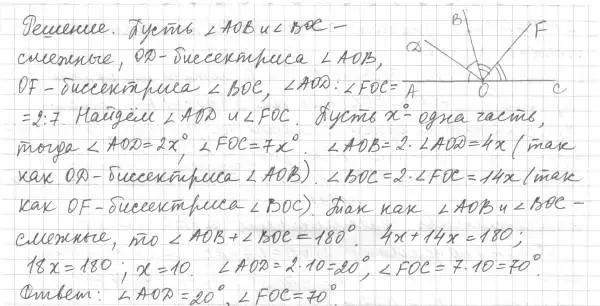 Решение. Пусть ∠AOB и ∠BOC –
смежные, OD – биссектриса ∠AOB,
OF – биссектриса ∠BOC, ∠AOD : ∠FOC =
= 2:7. Найдём ∠AOD и ∠FOC. Пусть x° – одна часть,
тогда ∠AOD = 2x°, ∠FOC = 7x°. ∠AOB = 2·∠AOD = 4x (так
как OD – биссектриса ∠AOB). ∠BOC = 2·∠FOC = 14x (так
как OF – биссектриса ∠BOC). Так как ∠AOB и ∠BOC –
смежные, то ∠AOB + ∠BOC = 180°. 4x + 14x = 180;
18x = 180; x = 10. ∠AOD = 2·10 = 20°, ∠FOC = 7·10 = 70°.
Ответ: ∠AOD = 20°, ∠FOC = 70°
B
F
D
A
O
C